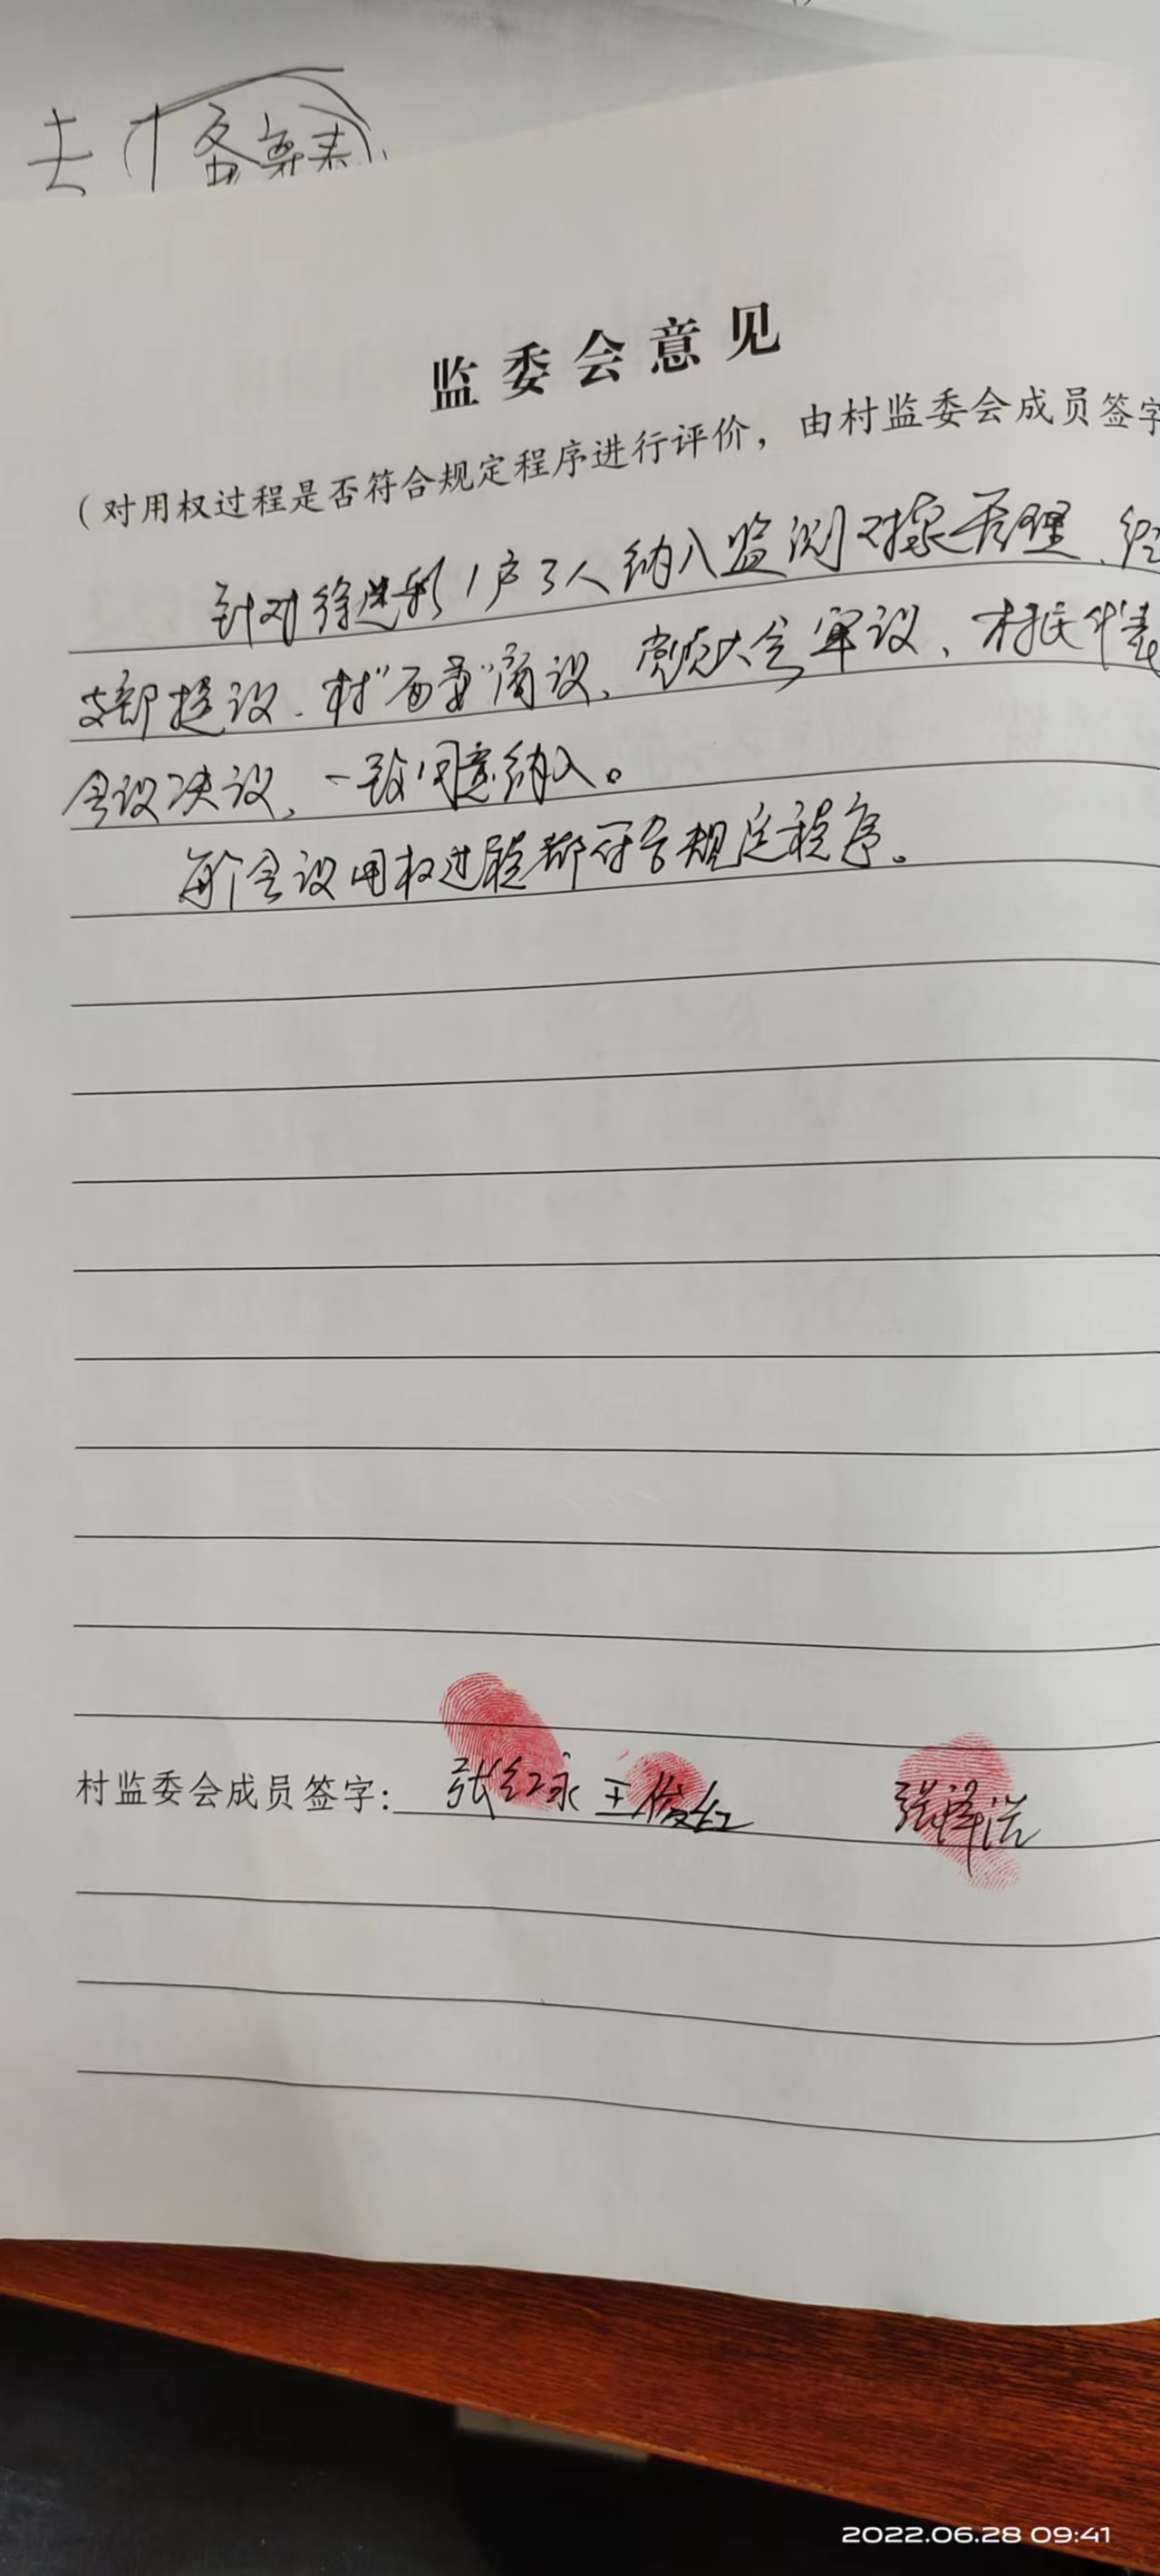 备案表
监委会意见
（对用权过程是否符合规定程序进行评价，由村监委会成员签字
针对徐进彩1户3人纳入监测对象管理、经
支部提议、村“两委”商议、党员大会审议、村民代表
会议决议、一致同意纳入。
每个会议用权过程都符合规定程序。
村监委会成员签字： 张红永 王俊红 张泽浩
2022.06.28 09:41